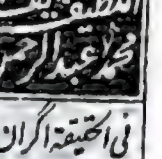 محمد عبد الرحمن
فی الحقیقۃ اگر ان